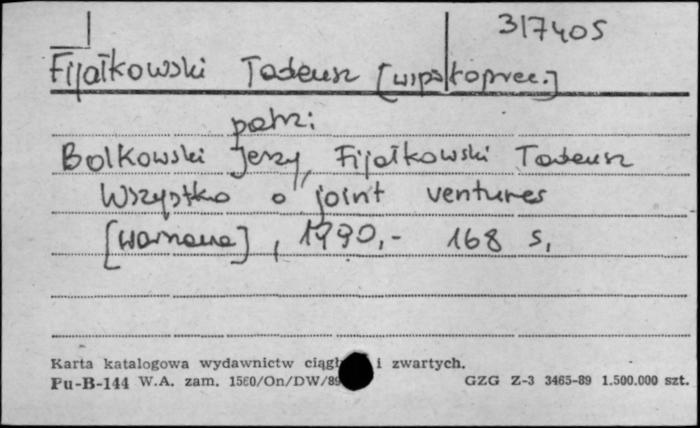 317405
Fijałkowski Tadeusz [współoprac.]
patrz:
Bolkowski Jerzy, Fijałkowski Tadeusz
Wszystko o "joint ventures
[Warszawa], 1990,- 168 s,
Karta katalogowa wydawnictw ciągł i zwartych.
Pu-B-144 W.A. zam. 1560/On/DW/89 GZG Z-3 3465-89 1.500.000 szt.